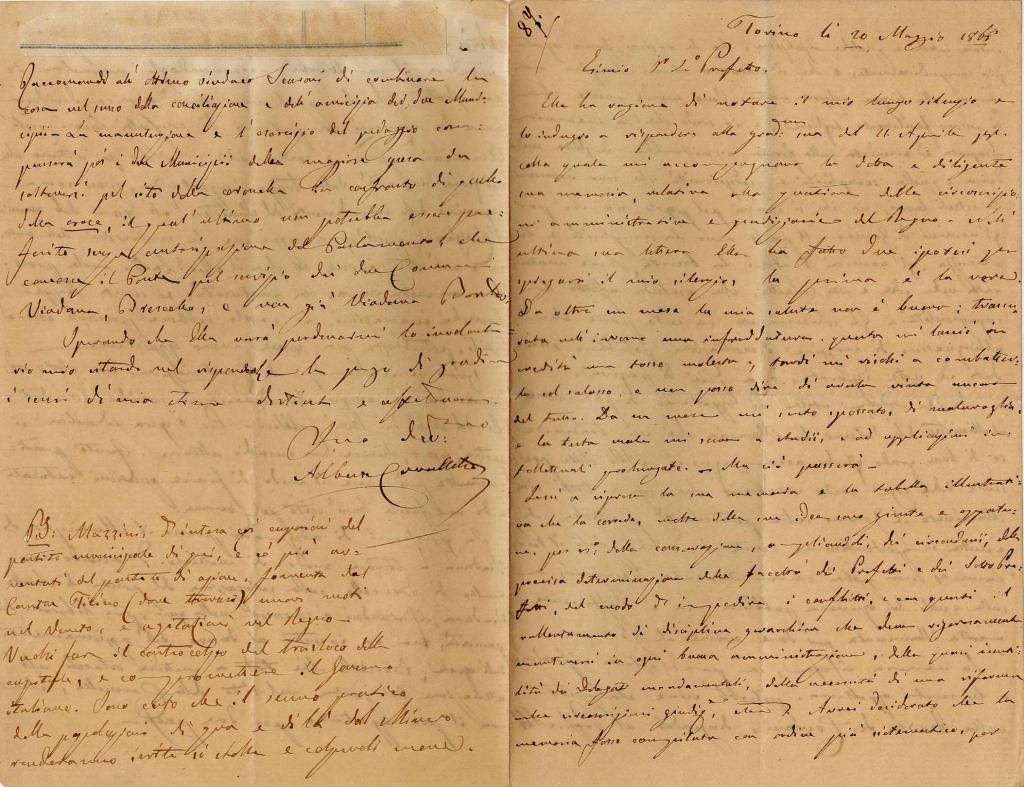 Raccomandi all' ottimo sindaco di continuare la
cosa nel senso della conciliazione e dell' amicizia dei due Muni-
cipii – La manutenzione e l' esercizio del pedaggio com-
penserà poi i due Municipii della maggior spesa da
sostenersi pel sito della coronella in confronto di quello
della croce, il qual' ultimo non potrebbe essere pre-
ferito senza autorizzazione del Parlamento, che
concesse il Ponte pel servizio dei due Comuni
Viadana, Brescello, e non già Viadana
Sperando che Ella vorrà perdonarmi lo involonta-
rio mio ritardo nel rispondere la prego di gradire
i sensi di mia stima distinta e
Suo
Alberto Cavalletto
P.S: Mazzini, d'intesa coi del
partito municipale di qui, e più av-
ventati del partito di azione, fomenta dal
Canton Ticino (dove ) nuovi moti
nel Veneto, e agitazioni nel Regno –
Vuolsi fare il controcolpo del trasloco della
capitale, e compromettere il Governo
italiano. Sono certo che il senno pratico
della popolazione di qua e di là dal Mincio
renderanno sì stolte e colpevoli mene.
84
Torino li 20 Maggio 186
Esimio Prefetto.
Ella ha ragione di notare il mio lungo silenzio e
lo indugio a rispondere alla grad sua del 21 Aprile
colla quale mi accompagnava la dotta e diligente
sua memoria, relativa alla quistione delle circoscrizio-
ni amministrative e giudiziarie del Regno – Nell'
ultima sua lettera Ella ha fatto due ipotesi per
spiegarsi il mio silenzio, la prima è la vera.
Da oltre un mese la mia salute non è buona; trascu-
rata nell' inverno una infreddatura, questa mi lasciò in
eredità una tosse molesta; tardi mi risolsi a combatter-
la col salasso, e non posso dire di averla vinta ancora
del tutto. Da un mese mi sento spossato, di malavoglia,
e la testa male mi serve a studii, e ad applicazioni in-
tellettuali prolungate. – Ma ciò passerà –
Lessi a riprese la sua memoria e la tabella illustrati-
va che la correda, molte delle sue idee sono giuste e opportu-
ne, per es: della conservazione, ampliandoli, dei circondari, della
precisa determinazione delle facoltà dei Prefetti e dei Sotto Pre-
fetti, del modo di impedire i conflitti, e con questi il
rallentamento di disciplina gerarchica che deve rigorosamente
mantenersi in ogni buona amministrazione, della quasi inuti-
lità dei Delegati mandamentali, della necessità di una riforma
nelle circoscrizioni giudiz. Avrei desiderato che la
memoria fosse compilata con ordine più sistematico, per